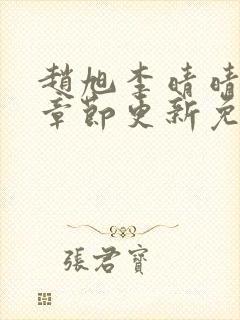 趙旭李晴晴
章節更新免
張君寶